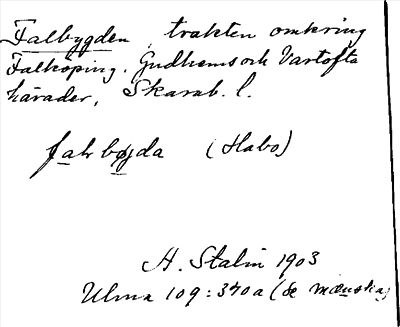 Falbygden, trakten omkring
Falköping. Gudhems och Vartofta
härader, Skarab. l.
falrbygda (Habo)
H. Stalin 1903
Ulma 109:340a (se mænska)